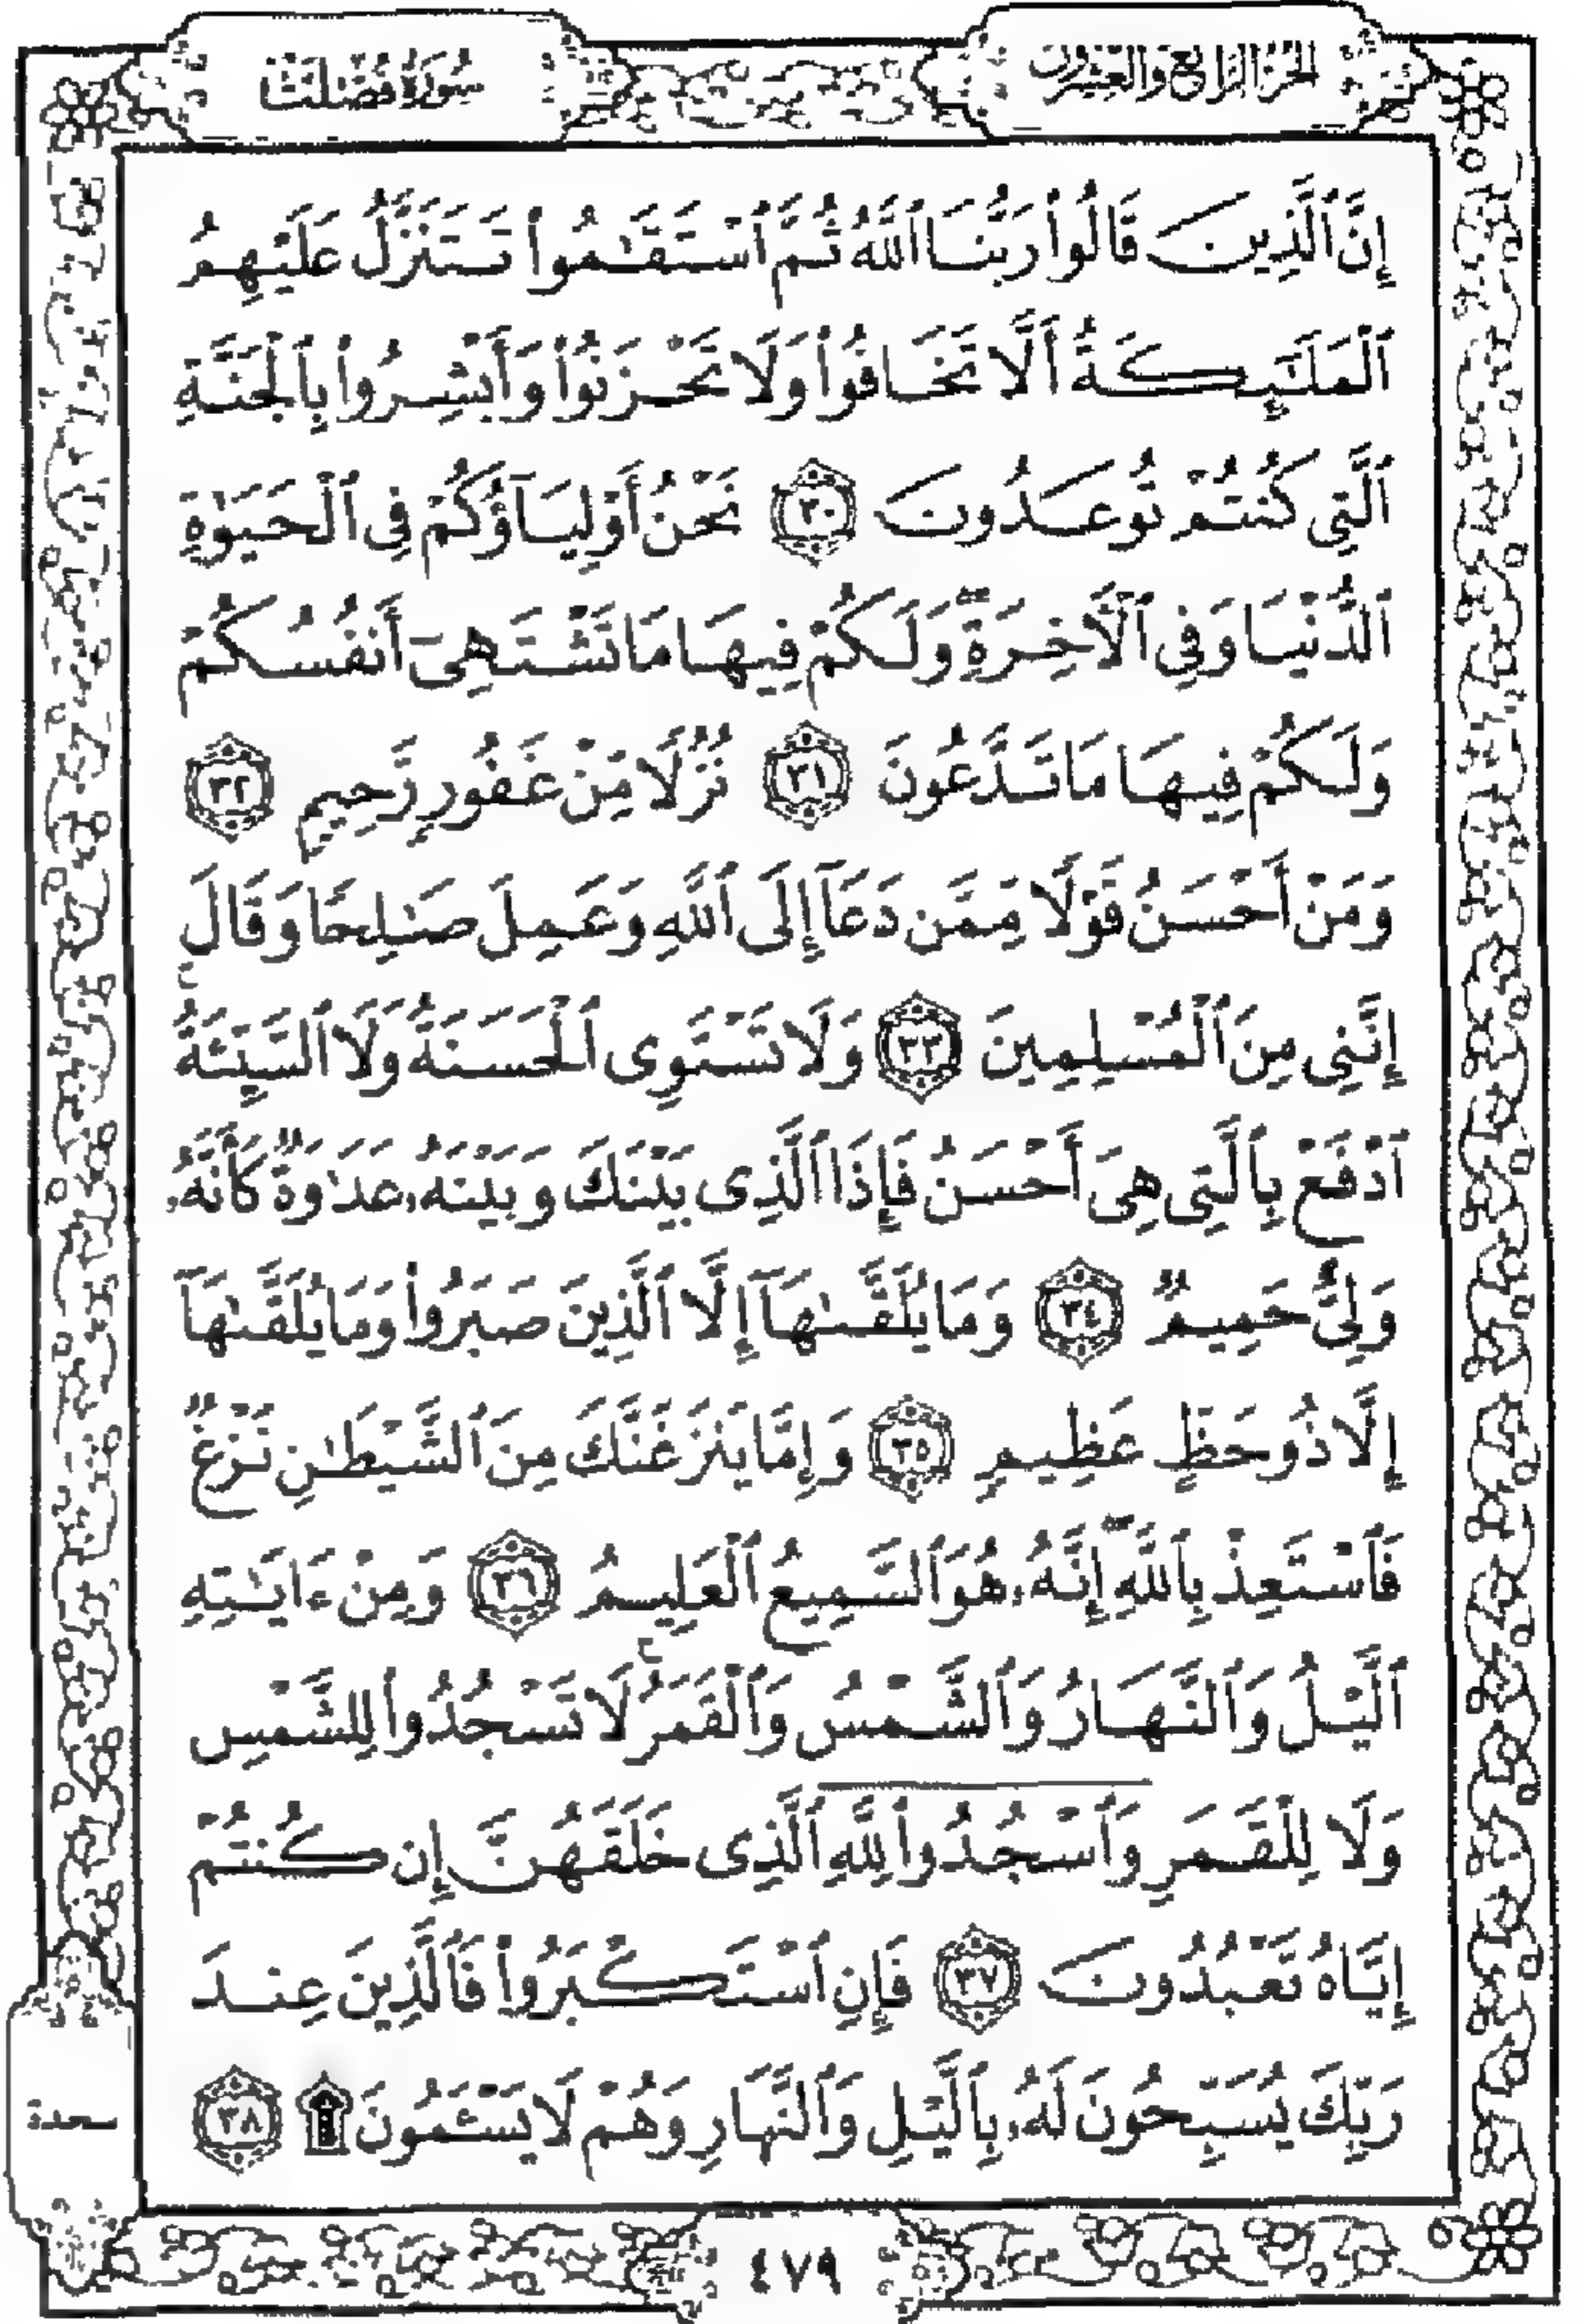 الجزء الرابع والعشرون
سورة فصلت
إِنَّ ٱلَّذِينَ قَالُوا۟ رَبُّنَا ٱللَّهُ ثُمَّ ٱسْتَقَـٰمُوا۟ تَتَنَزَّلُ عَلَيْهِمُ
ٱلْمَلَـٰٓئِكَةُ أَلَّا تَخَافُوا۟ وَلَا تَحْزَنُوا۟ وَأَبْشِرُوا۟ بِٱلْجَنَّةِ
ٱلَّتِى كُنتُمْ تُوعَدُونَ ٣٠ نَحْنُ أَوْلِيَآؤُكُمْ فِى ٱلْحَيَوٰةِ
ٱلدُّنْيَا وَفِى ٱلْـَٔاخِرَةِ ۖ وَلَكُمْ فِيهَا مَا تَشْتَهِىٓ أَنفُسُكُمْ
وَلَكُمْ فِيهَا مَا تَدَّعُونَ ٣١ نُزُلًا مِّنْ غَفُورٍ رَّحِيمٍ ٣٢
وَمَنْ أَحْسَنُ قَوْلًا مِّمَّن دَعَآ إِلَى ٱللَّهِ وَعَمِلَ صَـٰلِحًا وَقَالَ
إِنَّنِى مِنَ ٱلْمُسْلِمِينَ ٣٣ وَلَا تَسْتَوِى ٱلْحَسَنَةُ وَلَا ٱلسَّيِّئَةُ ۚ
ٱدْفَعْ بِٱلَّتِى هِىَ أَحْسَنُ فَإِذَا ٱلَّذِى بَيْنَكَ وَبَيْنَهُۥ عَدَٰوَةٌ كَأَنَّهُۥ
وَلِىٌّ حَمِيمٌ ٣٤ وَمَا يُلَقَّىٰهَآ إِلَّا ٱلَّذِينَ صَبَرُوا۟ وَمَا يُلَقَّىٰهَآ
إِلَّا ذُو حَظٍّ عَظِيمٍ ٣٥ وَإِمَّا يَنزَغَنَّكَ مِنَ ٱلشَّيْطَـٰنِ نَزْغٌ
فَٱسْتَعِذْ بِٱللَّهِ ۖ إِنَّهُۥ هُوَ ٱلسَّمِيعُ ٱلْعَلِيمُ ٣٦ وَمِنْ ءَايَـٰتِهِ
ٱلَّيْلُ وَٱلنَّهَارُ وَٱلشَّمْسُ وَٱلْقَمَرُ ۚ لَا تَسْجُدُوا۟ لِلشَّمْسِ
وَلَا لِلْقَمَرِ وَٱسْجُدُوا۟ لِلَّهِ ٱلَّذِى خَلَقَهُنَّ إِن كُنتُمْ
إِيَّاهُ تَعْبُدُونَ ٣٧ فَإِنِ ٱسْتَكْبَرُوا۟ فَٱلَّذِينَ عِندَ
رَبِّكَ يُسَبِّحُونَ لَهُۥ بِٱلَّيْلِ وَٱلنَّهَارِ وَهُمْ لَا يَسْـَٔمُونَ ۩ ٣٨
سجدة
٤٧٩